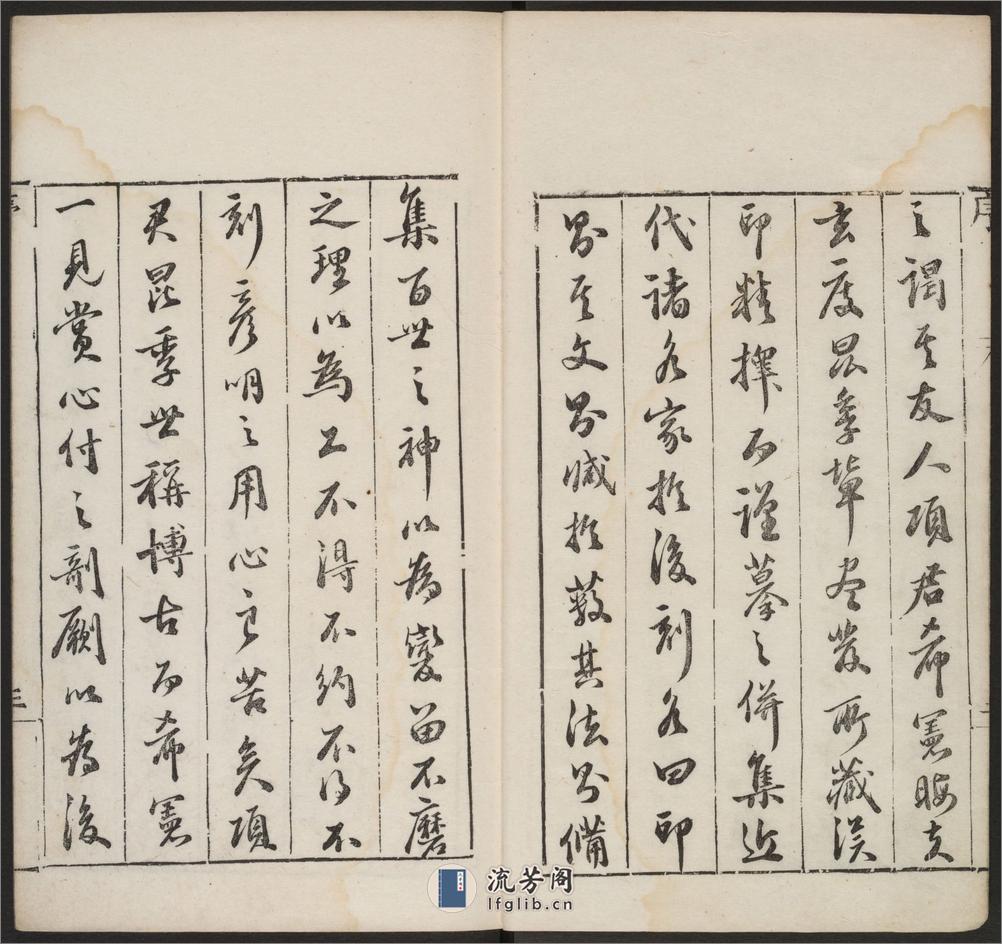 之謂其友人項君希憲晦夫
玄度昆季輩盡發所藏漢
印精擇而謹摹之併集近
代諸名家於後刻名曰印
則其文則臧於藪其法則備
集百世之神以為變留不磨
之理以為工不得不約不得不
刻彥明之用心良苦矣項
君昆季世稱博古而希憲
一見賞心付之剞劂以為後
序
三
流芳阁
lfglib.cn